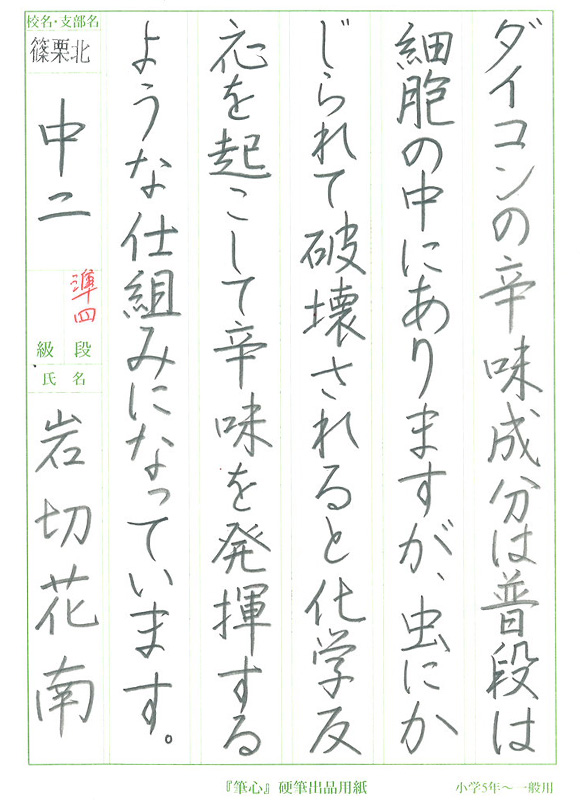 ダイコンの辛味成分は普段は
細胞の中にありますが、虫にか
じられて破壊されると化学反
応を起こして辛味を発揮する
ような仕組みになっています。
校名・支部名
篠栗北
中二
準四
段
級
氏名
岩切花南
『筆心』硬筆出品用紙
小学5年〜一般用